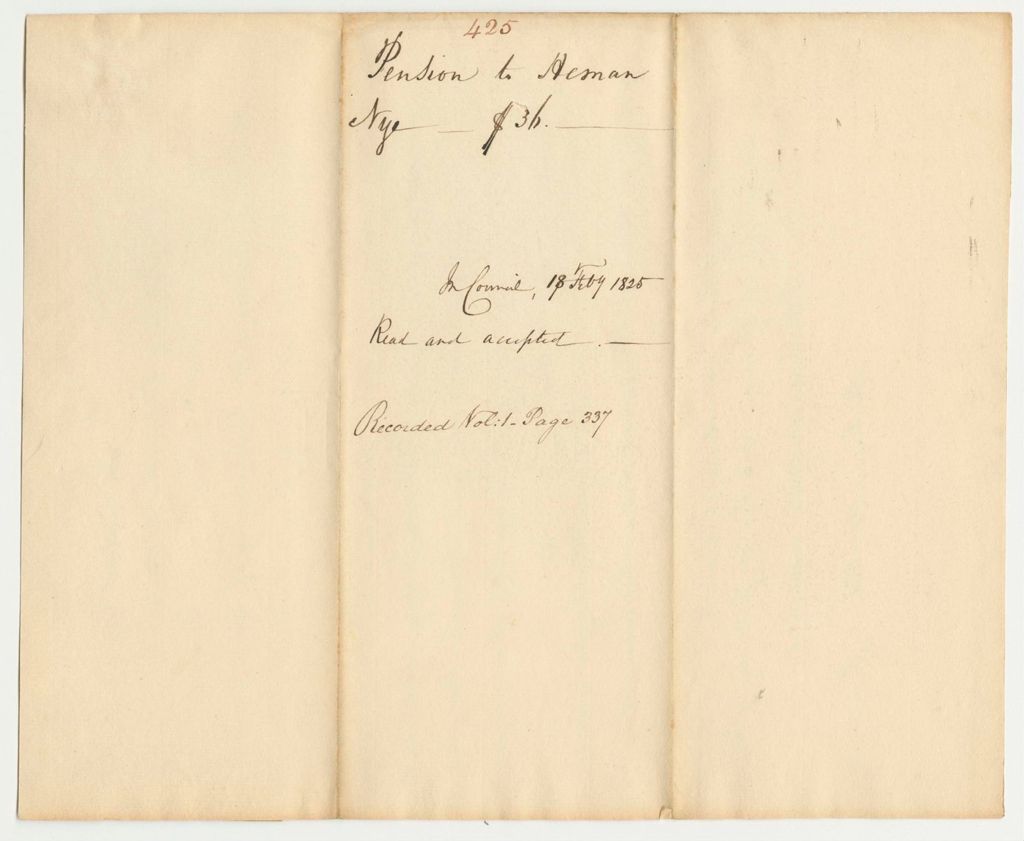 425
Pension to Heman
Nye — $36. —
In Council, 18 Feby 1825
Read and accepted. —
Recorded Vol: 1 - Page 337